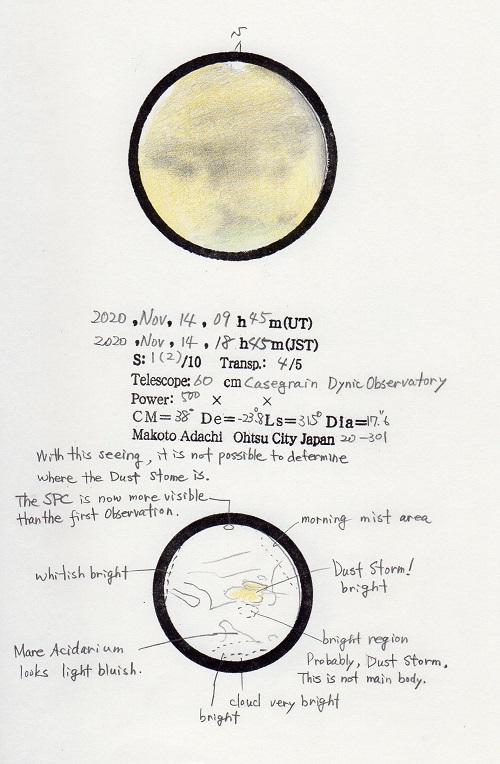 S
2020, Nov, 14, 09 h 45 m (UT)
2020, Nov, 14, 18 h 45 m (JST)
S: 1(2)/10 Transp.: 4/5
Telescope: 60 cm Casegrain Dynic Observatory
Power: 500 × ×
CM= 38° De= -23.8° Ls= 315° Dia= 17.″6
Makoto Adachi Ohtsu City Japan 20-301
With this seeing, it is not possible to determine
where the Dust Stome is.
The SPC is now more visible
than the first Observation.
morning mist area
whitish bright
Dust Storm!
bright
Mare Acidarium
looks light bluish.
bright region
Probably, Dust Storm.
This is not main body.
cloud very bright
bright